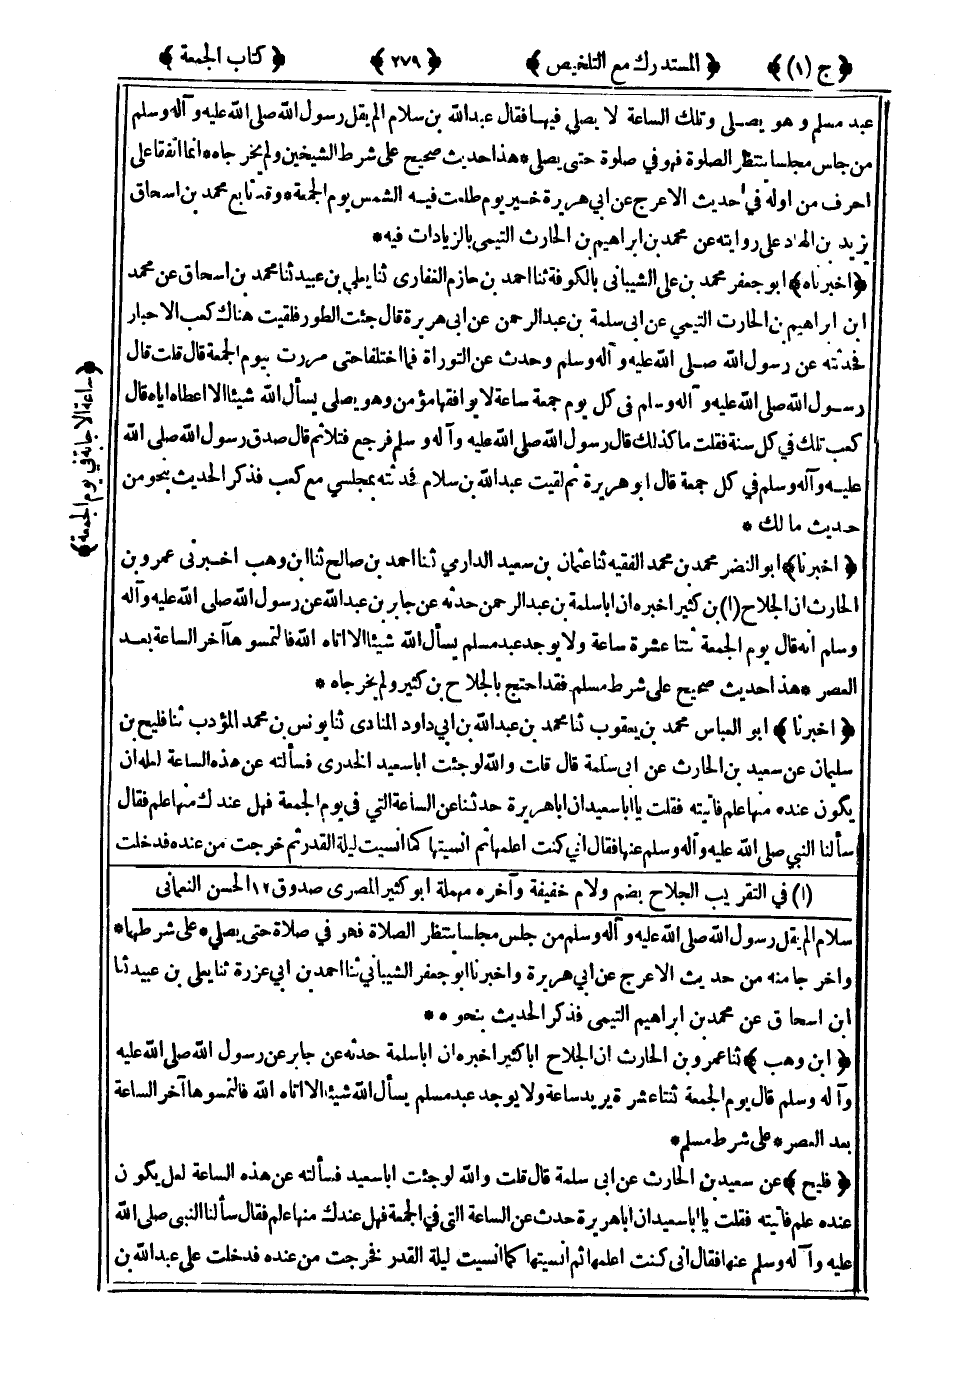 ﴿ ج (١) ﴾ ﴿ المستدرك مع التلخيص ﴾ ﴿ ٢٧٩ ﴾ ﴿ كتاب الجمعة ﴾
عبد مسلم و هو يصلى وتلك الساعة لا يصلي فيها فقال عبدالله بن سلام الم يقل رسول الله صلى الله عليه وآله وسلم
من جلس مجلسا ينتظر الصلوة فهو في صلوة حتى يصلي * هذا حديث صحيح على شرط الشيخين ولم يخرجاه * انما اتفقا على
احرف من اوله في حديث الاعرج عن ابي هريرة خير يوم طلعت فيه الشمس يوم الجمعة * وقد تابع محمد بن اسحاق
يزيد بن الهاد على روايته عن محمد بن ابراهيم بن الحارث التيمى بالزيادات فيه *
﴿ اخبرناه ﴾ ابو جعفر محمد بن على الشيبانى بالكوفة ثنا احمد بن حازم الغفارى ثنا يعلى بن عبيد ثنا محمد بن اسحاق عن محمد
ابن ابراهيم بن الحارث التيمي عن ابى سلمة بن عبد الرحمن عن ابى هريرة قال جئت الطور فلقيت هناك كعب الاحبار
فحدثته عن رسول الله صلى الله عليه وآله وسلم وحدث عن التوراة فما اختلفا حتى مررت بيوم الجمعة قال قلت قال
رسول الله صلى الله عليه وآله وسلم فى كل يوم جمعة ساعة لا يوافقها مؤمن وهو يصلى يسأل الله شيئا الا اعطاه اياه قال
كعب تلك في كل سنة فقلت ما كذلك قال رسول الله صلى الله عليه وآله وسلم فرجع فتلا ثم قال صدق رسول الله صلى الله
عليه وآله وسلم في كل جمعة قال ابو هريرة ثم لقيت عبدالله بن سلام فحدثته بمجلسي مع كعب فذكر الحديث بنحو من
حديث مالك *
﴿ اخبرنا ﴾ ابو النضر محمد بن محمد الفقيه ثنا عثمان بن سعيد الدارمي ثنا احمد بن صالح ثنا ابن وهب اخبرنى عمرو بن
الحارث ان الجلاح (١) بن كثير اخبره ان اباسلمة بن عبد الرحمن حدثه عن جابر بن عبدالله عن رسول الله صلى الله عليه وآله
وسلم انه قال يوم الجمعة ثنتا عشرة ساعة ولا يوجد عبد مسلم يسأل الله شيئا الا اتاه الله فالتمسوها آخر الساعة بعد
العصر * هذا حديث صحيح على شرط مسلم فقد احتج بالجلاح بن كثير ولم يخرجاه *
﴿ اخبرنا ﴾ ابو العباس محمد بن يعقوب ثنا محمد بن عبدالله بن ابي داود المنادى ثنا يونس بن محمد المؤدب ثنا فليح بن
سليمان عن سعيد بن الحارث عن ابى سلمة قال قلت والله لو جئت اباسعيد الخدرى فسألته عن هذه الساعة لعله ان
يكون عنده منها علم فأتيته فقلت يا اباسعيد ان اباهريرة حدثنا عن الساعة التي فى يوم الجمعة فهل عندك منها علم فقال
سألنا النبي صلى الله عليه وآله وسلم عنها فقال انى كنت اعلمها ثم انسيتها كما انسيت ليلة القدر ثم خرجت من عنده فدخلت
(١) في التقريب الجلاح بضم ولام خفيفة وآخره مهملة ابو كثير المصرى صدوق ١٢ الحسن النعمانى
سلام الم يقل رسول الله صلى الله عليه وآله وسلم من جلس مجلسا ينتظر الصلاة فهو في صلاة حتى يصلي * على شرطهما *
واخرجا منه من حديث الاعرج عن ابي هريرة واخبرنا ابو جعفر الشيباني ثنا احمد بن ابي عزرة ثنا يعلى بن عبيد ثنا
ابن اسحاق عن محمد بن ابراهيم التيمى فذكر الحديث بنحوه *
﴿ ابن وهب ﴾ ثنا عمرو بن الحارث ان الجلاح اباكثير اخبره ان اباسلمة حدثه عن جابر عن رسول الله صلى الله عليه
وآله وسلم قال يوم الجمعة ثنتا عشرة يريد ساعة ولا يوجد عبد مسلم يسأل الله شيئا الا اتاه الله فالتمسوها آخر الساعة
بعد العصر * على شرط مسلم *
﴿ فليح ﴾ عن سعيد بن الحارث عن ابى سلمة قال قلت والله لو جئت اباسعيد فسألته عن هذه الساعة لعل يكون
عنده علم فأتيته فقلت يا اباسعيد ان اباهريرة حدث عن الساعة التى في الجمعة فهل عندك منها علم فقال سألنا النبى صلى الله
عليه وآله وسلم عنها فقال انى كنت اعلمها ثم انسيتها كما انسيت ليلة القدر فخرجت من عنده فدخلت على عبدالله بن
﴿ ساعة الاجابة في يوم الجمعة ﴾